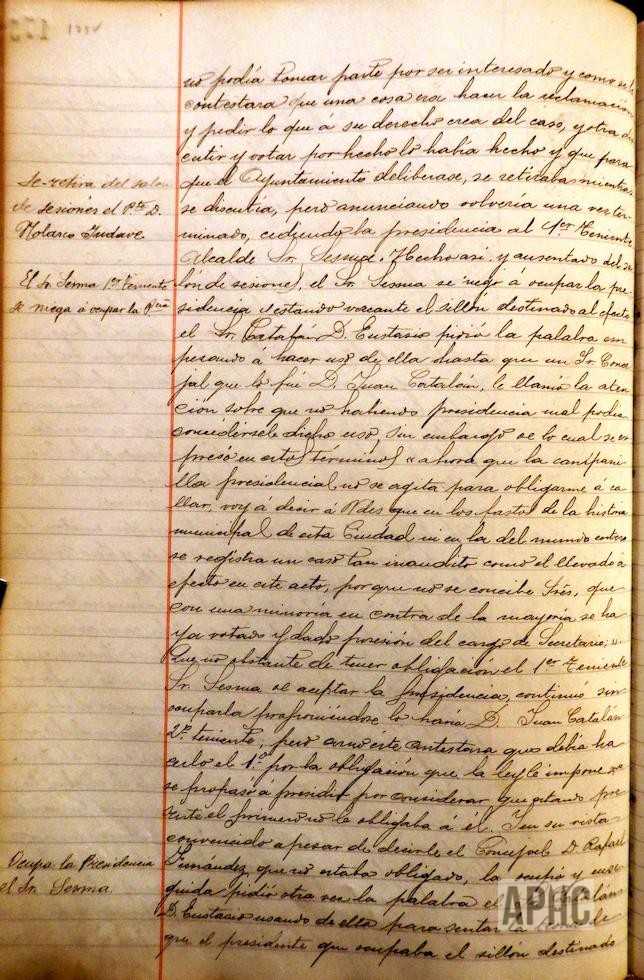 no podía tomar parte por ser interesado y como se le
contestara que una cosa era hacer la reclamación
y pedir lo que á su derecho crea del caso, y otra dis
cutir y votar por hecho lo había hecho y que para
Se retira del salon
que el Ayuntamiento deliberase, se retiraba mientras
de sesiones el Pte D.
se discutia, pero anunciando volveria una vez ter
Nolasco Indave
minado, cediendo la presidencia al 1er Teniente
Alcalde Sr. Sesma. Hecho asi y ausentado del sa
El Sr. Sesma 1er Teniente
lón de sesiones, el Sr. Sesma se negó á ocupar la pre
se niega á ocupar la Pcia
sidencia y estando vacante el sillón destinado al efecto
el Sr. Catalán D. Eustasio pidió la palabra em
pezando á hacer uso de ella hasta que un Sr. Conce
jal que lo fué D. Juan Catalán, le llamó la aten
ción sobre que no habiendo presidencia mal podia
concedersele dicho uso, sin embargo de lo cual se ex
presó en estos términos "ahora que la campani
lla presidencial no se agita para obligarme á ca
llar, voy á decir á Vdes que en los fastos de la historia
municipal de esta Ciudad ni en la del mundo entero
se registra un caso tan inaudito como el llevado á
efecto en este acto, por que no se concibe Sres, que
con una minoria en contra de la mayoría se ha
ya votado y dado posesión del cargo de Secretario;"
Que no obstante de tener obligación el 1er teniente
Sr. Sesma de aceptar la presidencia, continuó sin
ocuparla proponiéndose lo haria D. Juan Catalán
2º teniente, pero como éste contestara que debia ha
cerlo el 1º por la obligación que la ley le impone
se propase á presidir por considerar que estando pre
sente el primero no le obligaba á él. Y en su vista
convencido apesar de decirle el Concejal D. Rafael
Ocupa la Presidencia
Fernández que no estaba obligado, la ocupó y
el Sr. Sesma.
guida pidió otra vez la palabra el Catalán
D. Eustasio usando de ella para sentar la de
que el presidente que ocupaba el sillón destinado
APHC